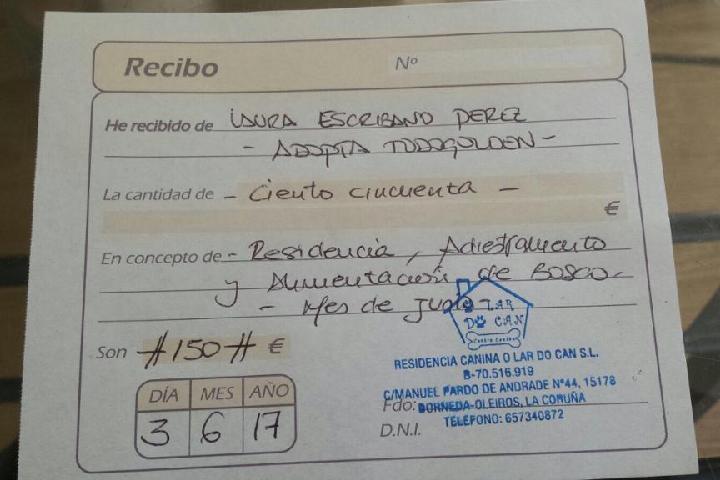 Recibo
Nº
He recibido de LAURA ESCRIBANO PEREZ
- ADOPTA TODOGOLDEN -
La cantidad de - Ciento cincuenta -
€
En concepto de - Residencia, Adiestramiento
y Alimentación de BOSCO -
- Mes de Junio
LAR
DO CAN
Son #150# €
DÍA MES AÑO
3 6 17
RESIDENCIA CANINA O LAR DO CAN S.L.
B-70.516.919
C/MANUEL PARDO DE ANDRADE Nº44, 15178
Fdo: BORNEDA-OLEIROS, LA CORUÑA
TELEFONO: 657340872
D.N.I.